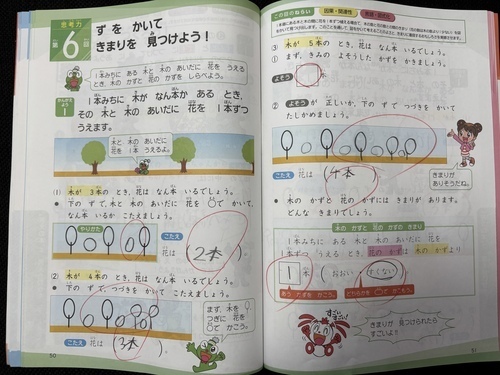 思考力
第6回
ずを かいて
きまりを 見つけよう！
1本みちに ある 木と 木の あいだに 花を うえる
とき、木の かずと 花の かずを しらべよう。
かんがえよう
1
1本みちに 木が なん本か ある とき、
その 木と 木の あいだに 花を 1本ずつ
うえます。
木と 木の あいだに
花を 1本 うえるよ。
① 木が 3本の とき、花は なん本 いるでしょう。
● 下の ずで、木と 木の あいだに 花を ○で かいて、
なん本 いるか こたえましょう。
やりかた
こたえ
花は (2本)
② 木が 4本の とき、花は なん本 いるでしょう。
● 下の ずで、つづきを かいて こたえましょう。
まず、木を
つぎに 花を
○で かこう。
こたえ 花は (3本)
50
この回のねらい
③ 木が 5本の とき、花は なん本 いるでしょう。
① まず、きみの よそうした かずを かきましょう。
よそう
② よそうが 正しいか、下の ずで つづきを かいて
たしかめましょう。
こたえ 花は (4本)
きまりが
ありそうだね。
● 木の かずと 花の かずには きまりが あります。
どんな きまりでしょう。
木の かずと 花の かずの きまり
1本みちに ある 木と 木の あいだに 花を
1本ずつ うえる とき、花の かずは 木の かずより
1本 おおい すくない
あう かずを かこう。
どちらかを ○で かこもう。
すごい すごい!
きまりが 見つけられたら
すごいよ！
51